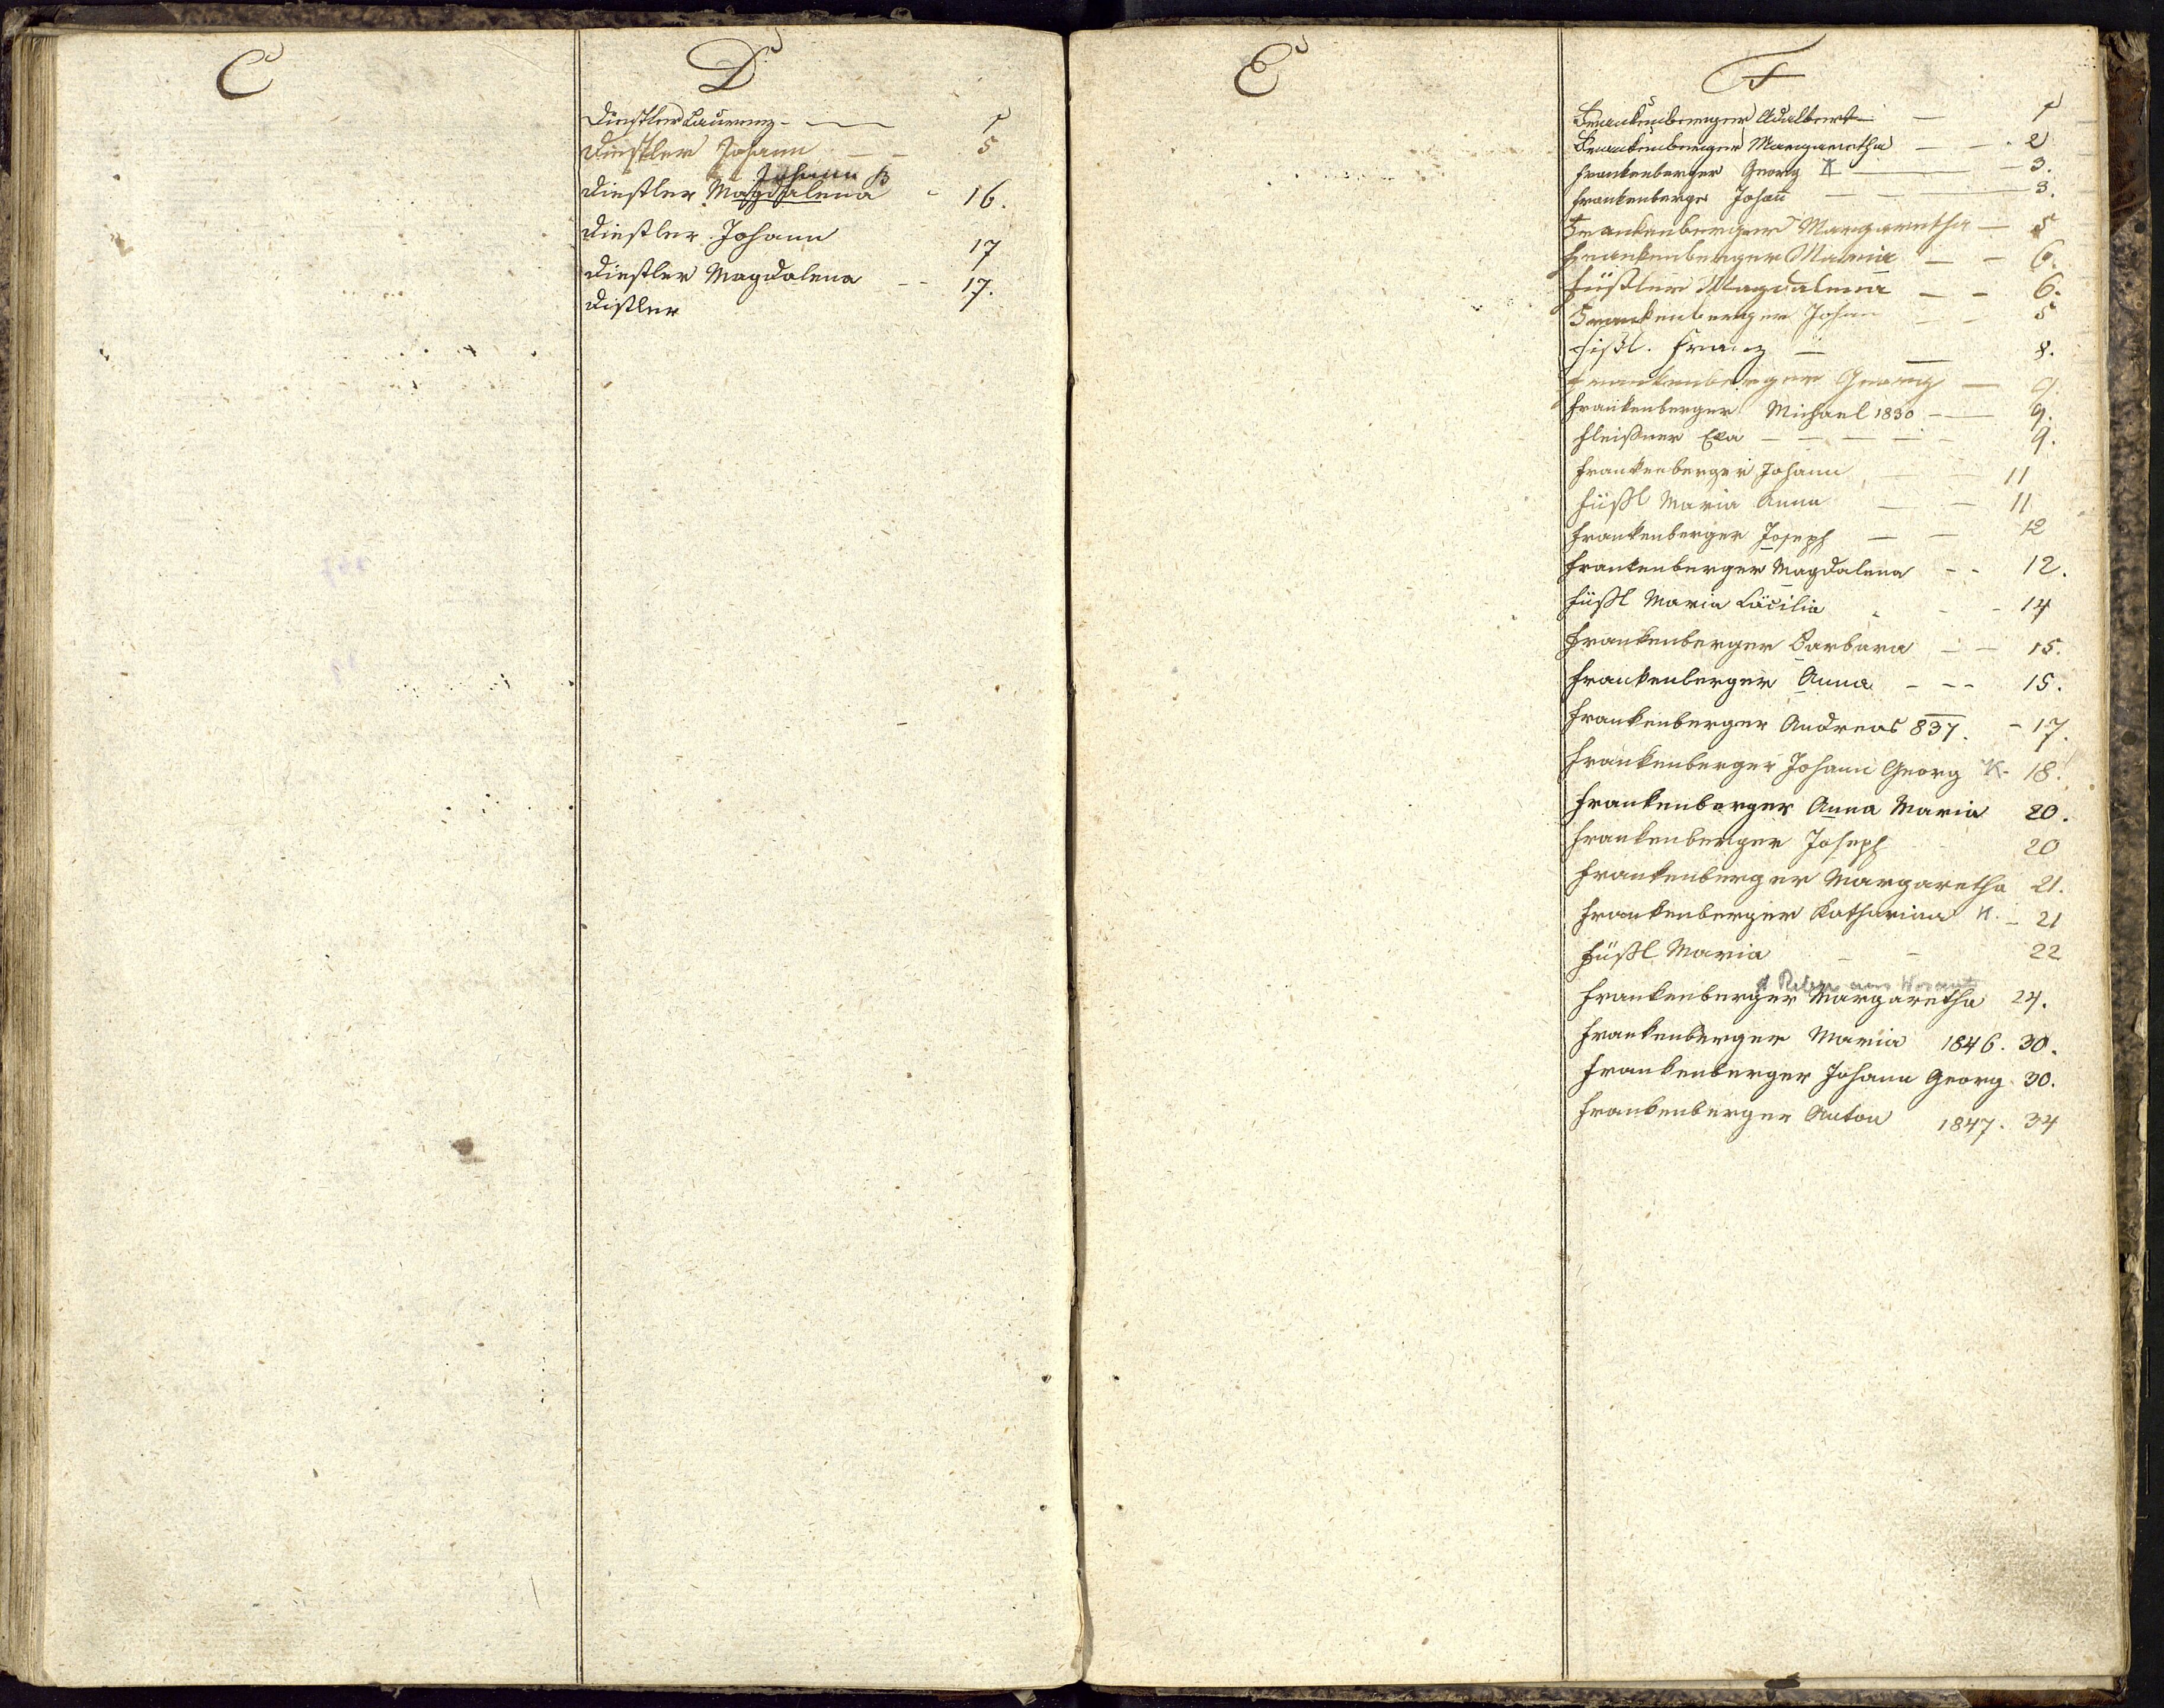 C
D
Diestler Laurenz - — 1
Diestler Johann — - 5
Johann
Diestler Magdalena - 16.
Diestler Johann 17
Diestler Magdalena -- 17.
Distler
E
F
Frankenberger Adalbert — 1
Frankenberger Margaretha — - 2
Frankenberger Georg — 3.
Frankenberger Johan̅ — 3.
Frankenberger Margaretha — 5
Frankenberger Maria — - 6.
Füßler Magdalena — - 6.
Frankenberger Johann — - 5
Fißl. Franz — — 8.
Frankenberger Georg — 9.
Frankenberger Michael 1830 - — 9.
Fleißner Eva — — — — - 9.
Frankenberger Johann — — 11
Füßl Maria Anna — — 11
Frankenberger Joseph — — 12
Frankenberger Magdalena - - 12.
Füßl Maria Cäcilia - - - 14
Frankenberger Barbara — — 15.
Frankenberger Anna - -- 15.
Frankenberger Andreas 837. - 17.
Frankenberger Johann Georg K- 18.
Frankenberger Anna Maria 20.
Frankenberger Joseph 20
Frankenberger Margaretha 21.
Frankenberger Katharina K. - 21
Füßl Maria - - 22
aus
Frankenberger Margaretha 24.
Frankenberger Maria 1846. 30.
Frankenberger Johann Georg 30.
Frankenberger Anton 1847. 34